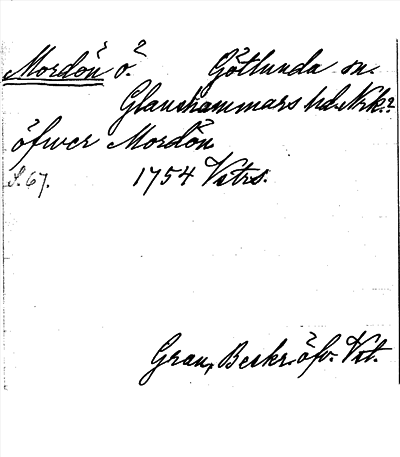 Mordön ö. Götlunda sn.
Glanshammars hd. Nrk.?
öfwer Mordön
S. 67. 1754 Vstrs.
Grau, Beskr. öfv. Vst.